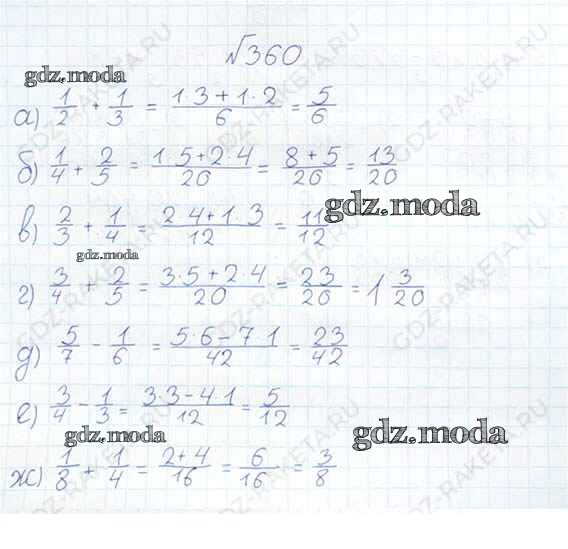 №360
gdz.moda
а) 1/2 + 1/3 = (1·3+1·2)/6 = 5/6
б) 1/4 + 2/5 = (1·5+2·4)/20 = (8+5)/20 = 13/20
gdz.moda
в) 2/3 + 1/4 = (2·4+1·3)/12 = 11/12
gdz.moda
г) 3/4 + 2/5 = (3·5+2·4)/20 = 23/20 = 1 3/20
д) 5/7 - 1/6 = (5·6-7·1)/42 = 23/42
е) 3/4 - 1/3 = (3·3-4·1)/12 = 5/12
gdz.moda
gdz.moda
ж) 1/8 + 1/4 = (2+4)/16 = 6/16 = 3/8
GDZ-RAKETA.RU